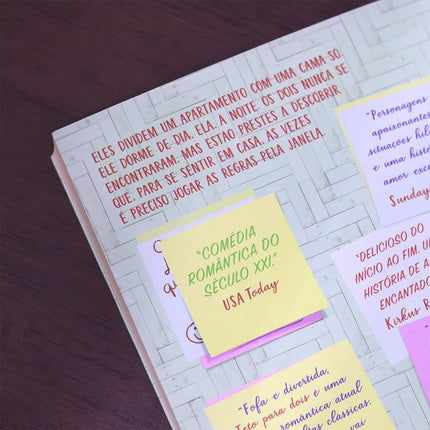 ELES DIVIDEM UM APARTAMENTO COM UMA CAMA SÓ.
ELE DORME DE DIA, ELA, À NOITE. OS DOIS NUNCA SE
ENCONTRARAM, MAS ESTÃO PRESTES A DESCOBRIR
QUE, PARA SE SENTIR EM CASA, ÀS VEZES
É PRECISO JOGAR AS REGRAS PELA JANELA.
"Personagens
apaixonantes
situações hil
e uma histó
amor exce
Sunday
"COMÉDIA
ROMÂNTICA DO
SÉCULO XXI."
USA Today
"DELICIOSO DO
INÍCIO AO FIM. UM
HISTÓRIA DE A
ENCANTADO
Kirkus R
"Fofa e divertida,
Teto para dois é uma
romântica atual
clássicas.
vai